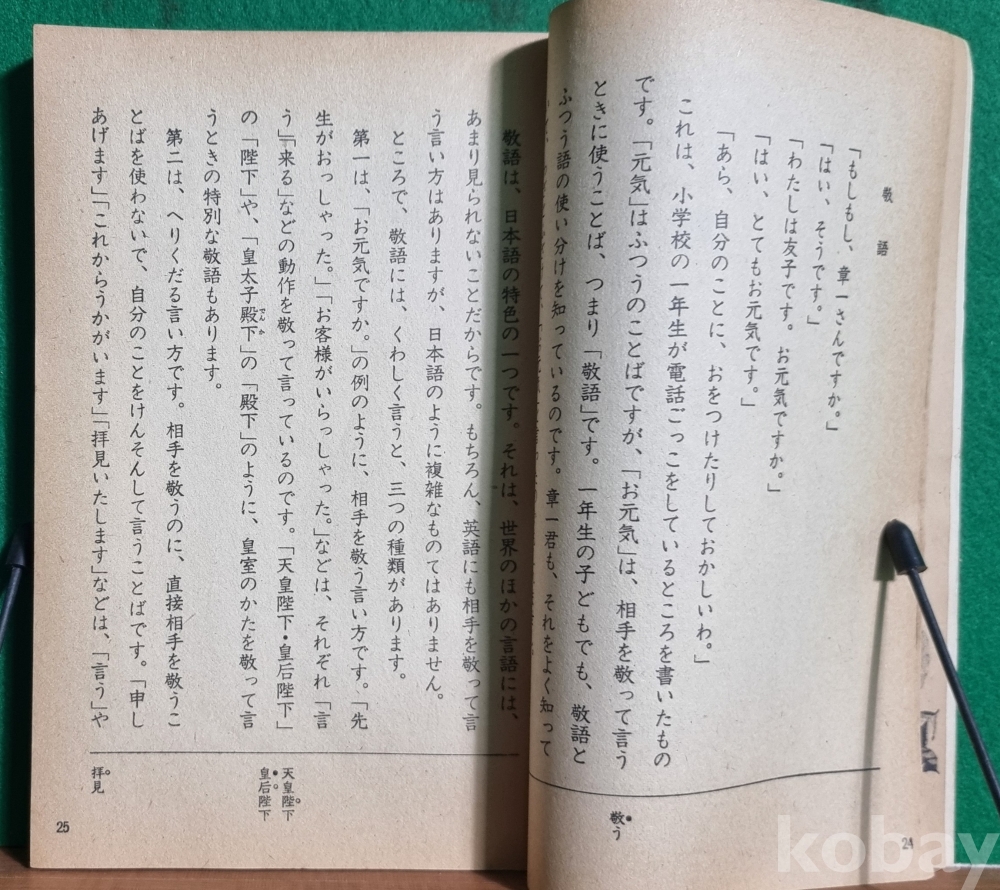 敬語
「もしもし、章一さんですか。」
「はい、そうです。」
「わたしは友子です。お元気ですか。」
「はい、とてもお元気です。」
「あら、自分のことに、おをつけたりしておかしいわ。」
これは、小学校の一年生が電話ごっこをしているところを書いたもの
です。「元気」はふつうのことばですが、「お元気」は、相手を敬って言う
ときに使うことば、つまり「敬語」です。一年生の子どもでも、敬語と
ふつう語の使い分けを知っているのです。章一君も、それをよく知って
敬う
24
敬語は、日本語の特色の一つです。それは、世界のほかの言語には、
あまり見られないことだからです。もちろん、英語にも相手を敬って言
う言い方はありますが、日本語のように複雑なものではありません。
ところで、敬語には、くわしく言うと、三つの種類があります。
第一は、「お元気ですか。」の例のように、相手を敬う言い方です。「先
生がおっしゃった。」「お客様がいらっしゃった。」などは、それぞれ「言
う」「来る」などの動作を敬って言っているのです。「天皇陛下・皇后陛下」
の「陛下」や、「皇太子殿下」の「殿下」のように、皇室のかたを敬って言
でんか
うときの特別な敬語もあります。
第二は、へりくだる言い方です。相手を敬うのに、直接相手を敬うこ
とばを使わないで、自分のことをけんそんして言うことばです。「申し
あげます」「これからうかがいます」「拝見いたします」などは、「言う」や
天皇陛下
皇后陛下
拝見
25
kobay